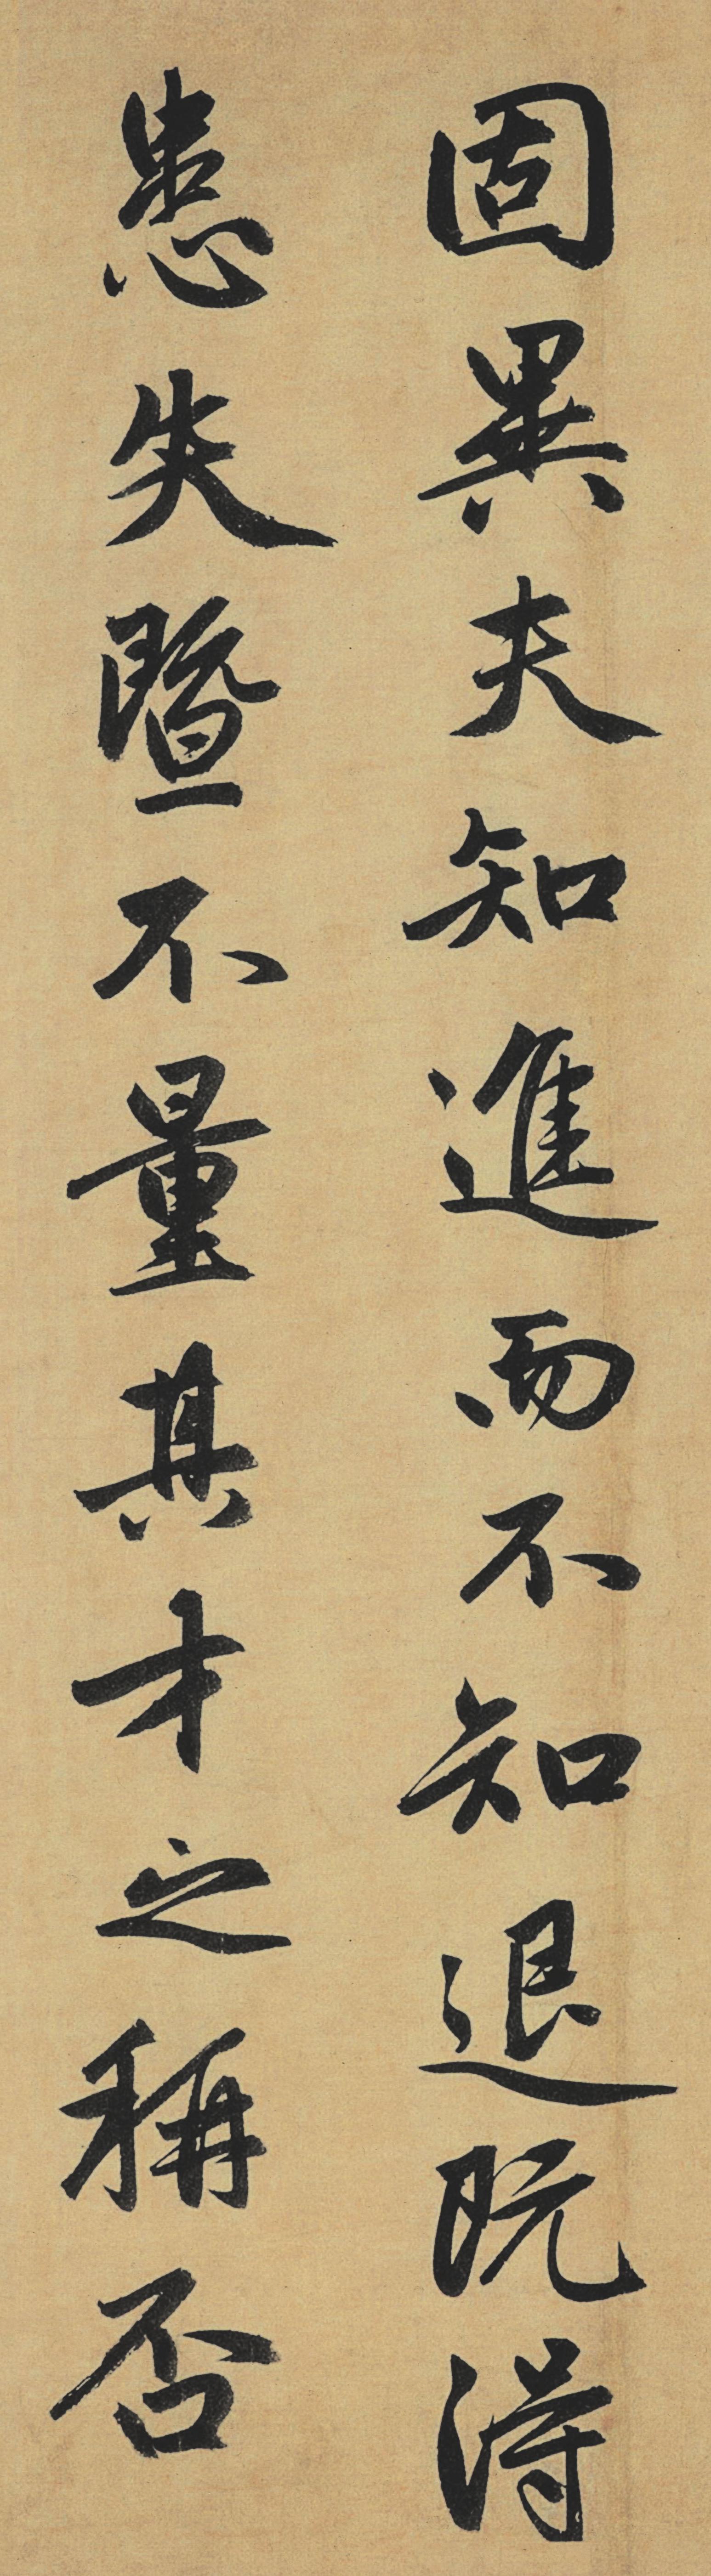 固異夫知進而不知退既得
患失暨不量其才之稱否